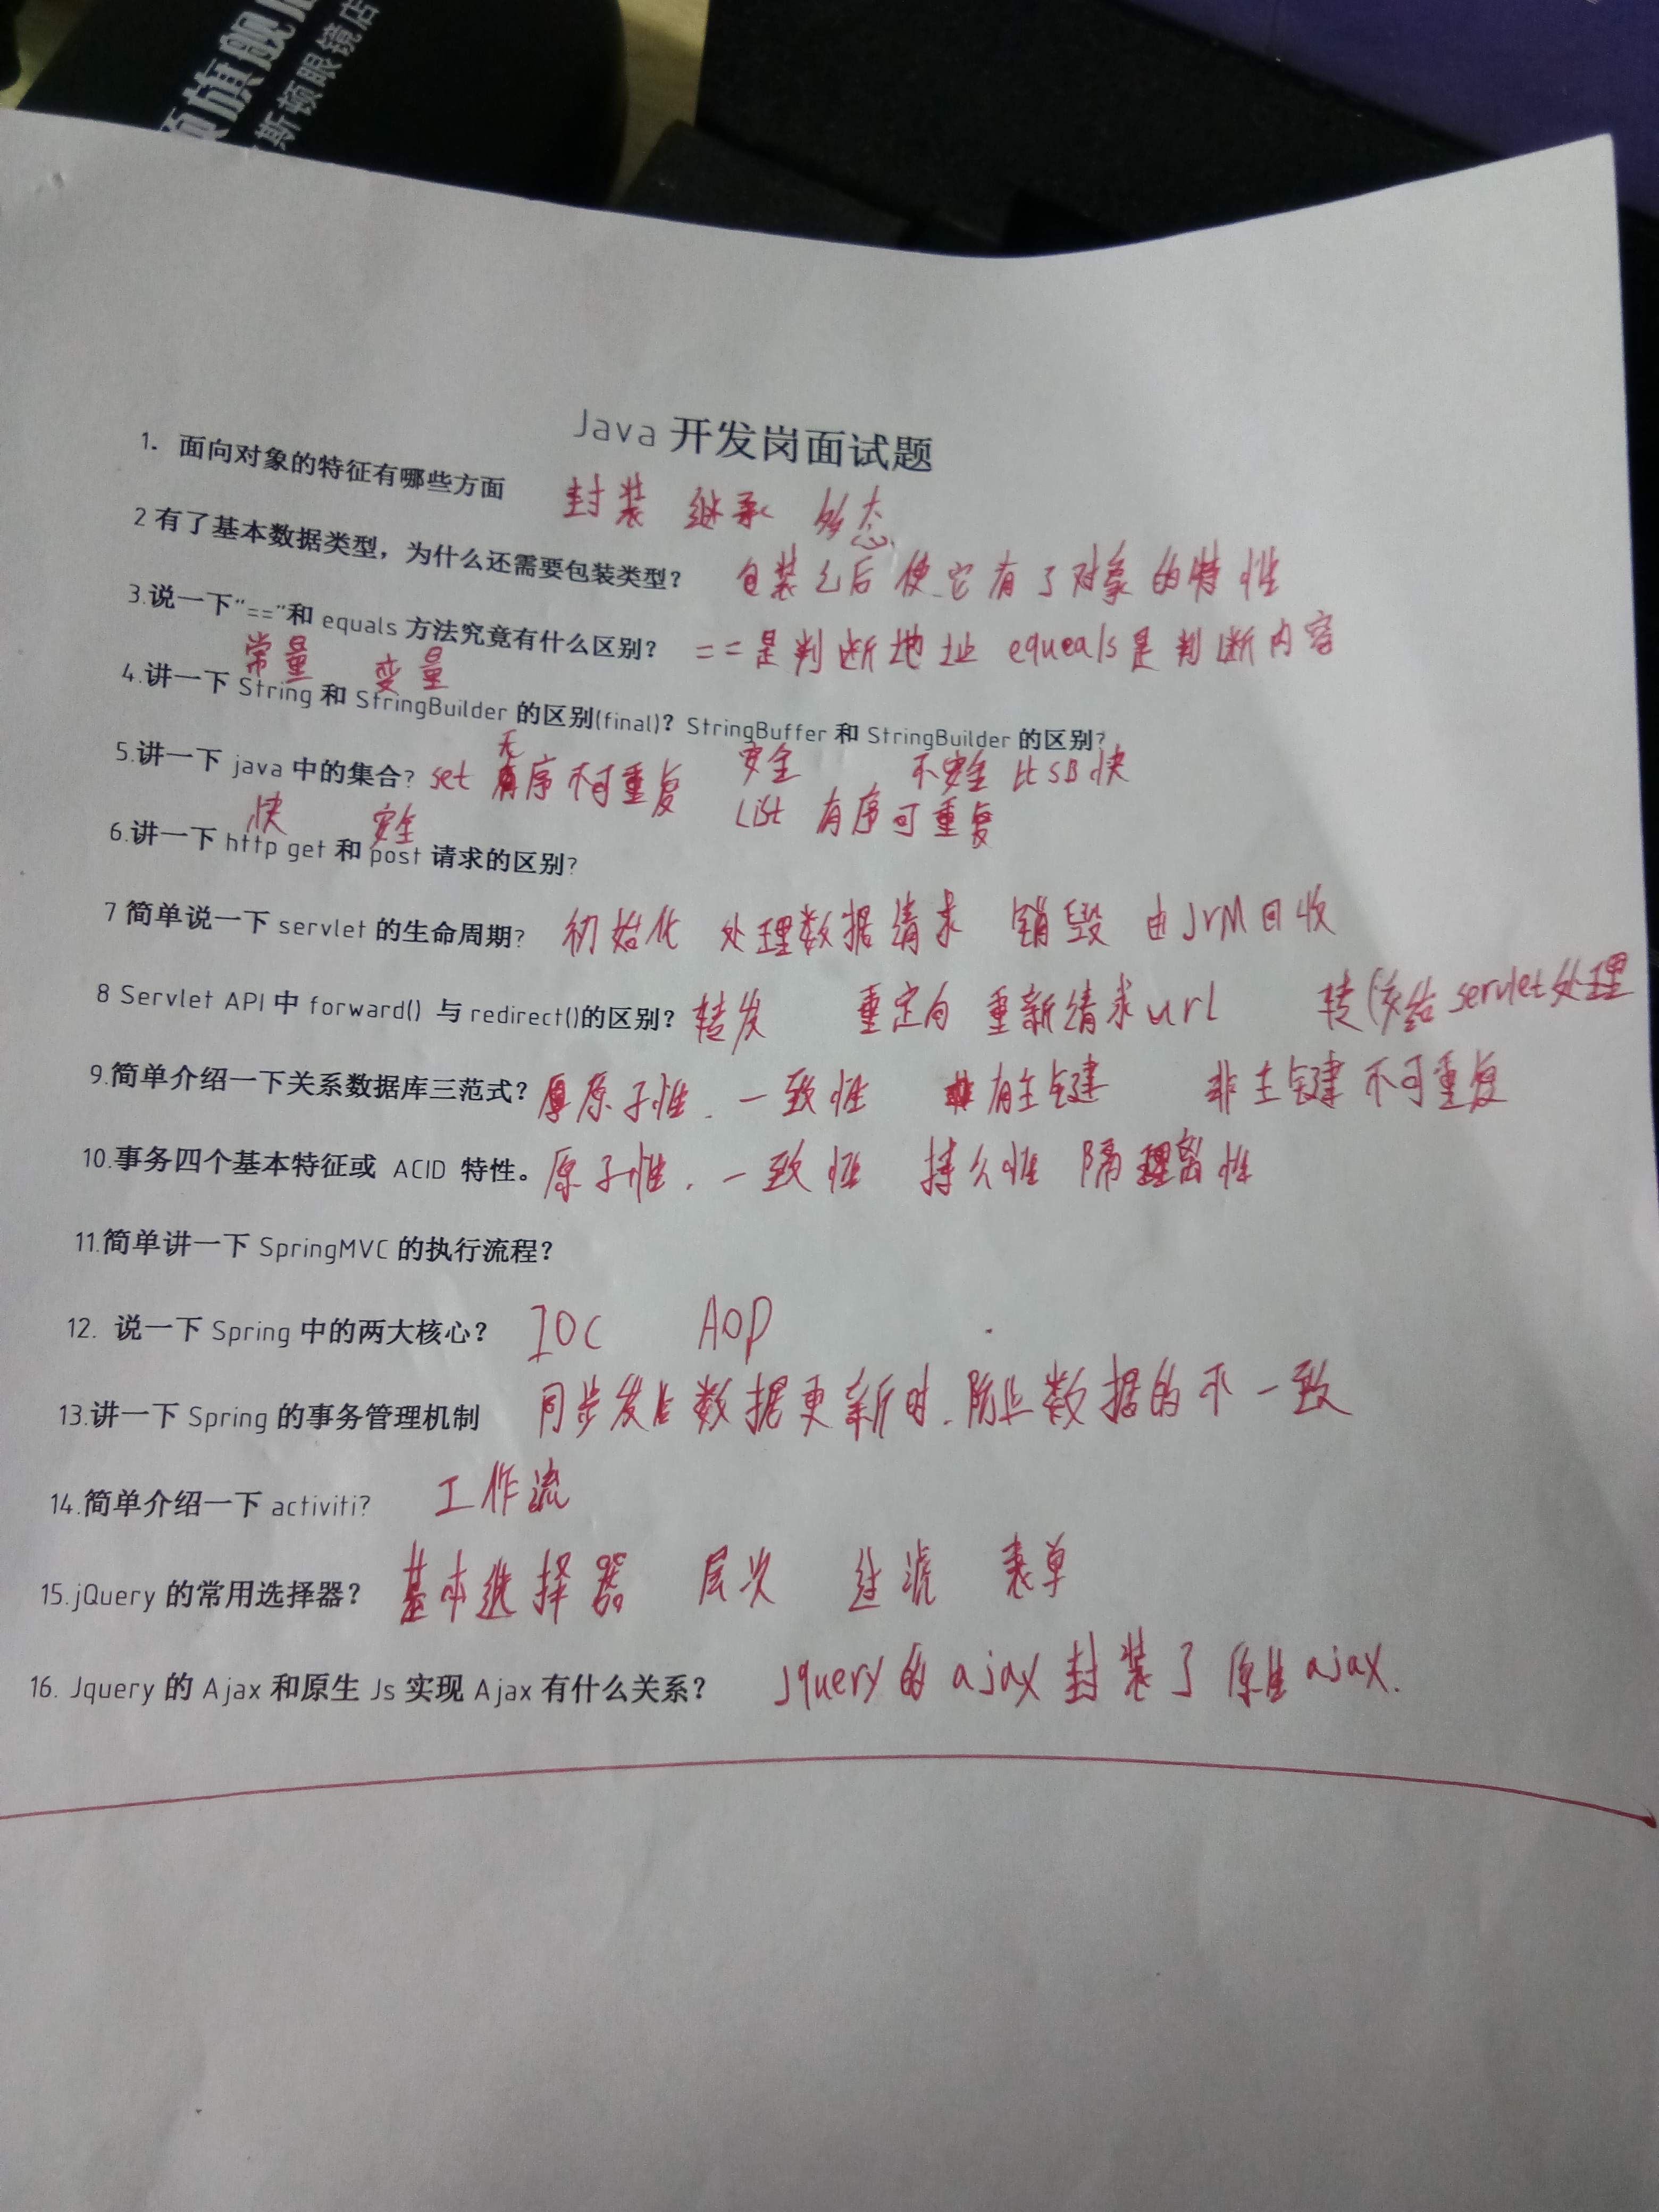 旗舰
斯顿眼镜店
Java 开发岗面试题
1. 面向对象的特征有哪些方面 封装 继承 多态
2 有了基本数据类型，为什么还需要包装类型？ 包装之后使它有了对象的特性
3.说一下"=="和 equals 方法究竟有什么区别？ ==是判断地址 equeals是判断内容
常量 变量
4.讲一下 String 和 StringBuilder 的区别(final)？StringBuffer 和 StringBuilder 的区别?
安全 不安全 比SB快
5.讲一下 java 中的集合? set 无序不可重复 List 有序可重复
快 安全
6.讲一下 http get 和 post 请求的区别?
7 简单说一下 servlet 的生命周期? 初始化 处理数据请求 销毁 由JVM回收
8 Servlet API 中 forward() 与 redirect()的区别？ 转发 重定向 重新请求url 转给servlet处理
9.简单介绍一下关系数据库三范式？ 原子性、一致性 有主键 非主键不可重复
10.事务四个基本特征或 ACID 特性。 原子性、一致性 持久性 隔离性
11.简单讲一下 SpringMVC 的执行流程？
12. 说一下 Spring 中的两大核心？ IOC AOP
13.讲一下 Spring 的事务管理机制 同步发生数据更新时、防止数据的不一致
14.简单介绍一下 activiti? 工作流
15.jQuery 的常用选择器？ 基本选择器 层次 过滤 表单
16. Jquery 的 Ajax 和原生 Js 实现 Ajax 有什么关系？ Jquery的ajax封装了原生ajax.